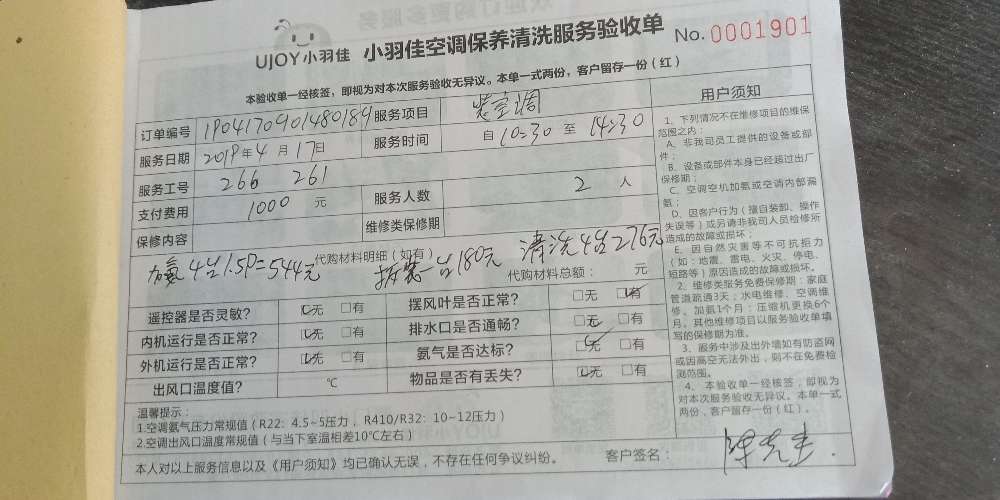 UJOY小羽佳 小羽佳空调保养清洗服务验收单 No.0001901
本验收单一经核签，即视为对本次服务验收无异议。本单一式两份，客户留存一份（红）
订单编号 1904170901480184 服务项目 装空调
服务日期 2019年4月17日 服务时间 自10:30至14:30
服务工号 266 261
支付费用 1000 元 服务人数 2 人
保修内容 维修类保修期
代购材料明细（如有）
加氨4台1.5P=544元 拆装一台180元 清洗4台276元
代购材料总额： 元
遥控器是否灵敏？ □无 □有 摆风叶是否正常？ □无 □有
内机运行是否正常？ □无 □有 排水口是否通畅？ □无 □有
外机运行是否正常？ □无 □有 氨气是否达标？ □无 □有
出风口温度值？ ℃ 物品是否有丢失？ □无 □有
温馨提示：
1.空调氨气压力常规值（R22：4.5~5压力，R410/R32：10~12压力）
2.空调出风口温度常规值（与当下室温相差10℃左右）
本人对以上服务信息以及《用户须知》均已确认无误，不存在任何争议纠纷。 客户签名： 陈先生
用户须知
1、下列情况不在维修项目的维保
范围之内：
A、非我司员工提供的设备或部
件；
B、设备或部件本身已经超过出厂
保修期；
C、空调空机加氨或空调内部漏
氨；
D、因客户行为（擅自装卸、操作
失误等）或另请非我司人员检修所
造成的故障或损坏；
E、因自然灾害等不可抗拒力
（如：地震、雷电、火灾、停电、
短路等）原因造成的故障或损坏。
2、维修类服务免费保修期：家庭
管道疏通3天；水电维修、空调维
修、加氨1个月；压缩机更换6个
月。其他维修项目以服务验收单填
写的保修期为准。
3、服务中涉及出外墙如有防盗网
或因高空无法外出，则不在免费检
测范围。
4、本验收单一经核签，即视为
对本次服务验收无异议。本单一式
两份，客户留存一份（红）。